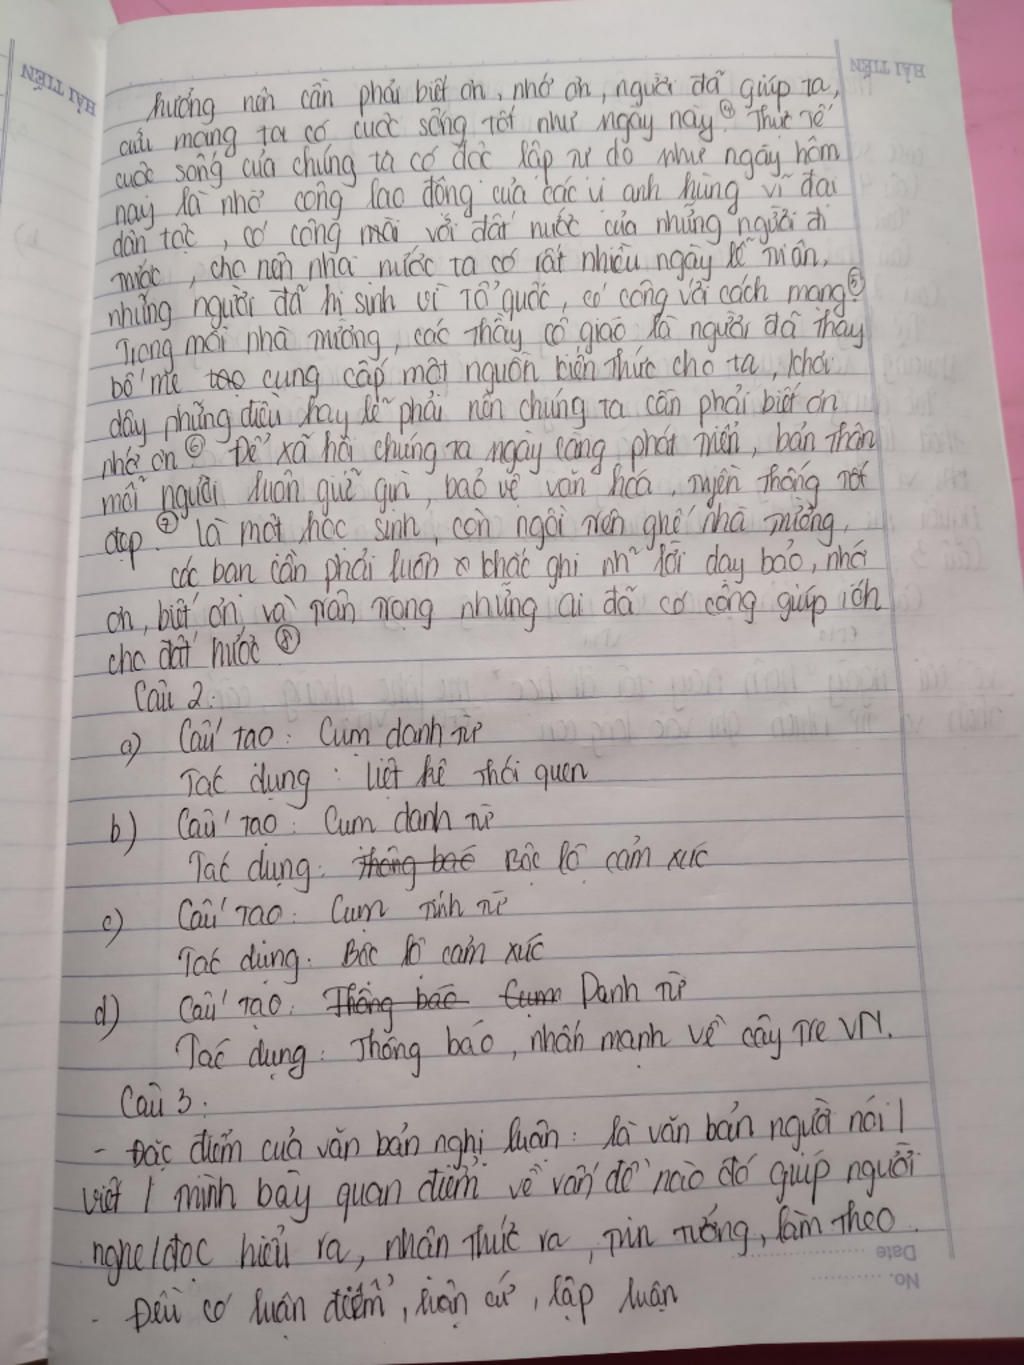 HẢI TIẾN
HẢI TIẾN
hưởng nên cần phải biết ơn, nhớ ơn, người đã giúp ta,
cưu mang ta có cuộc sống tốt như ngày nay④ Thực tế
cuộc sống của chúng ta có độc lập tự do như ngày hôm
nay là nhờ công lao động của các vị anh hùng vĩ đại
dân tộc, có công mãi với đất nước của những người đi
trước, cho nên nhà nước ta có rất nhiều ngày lễ
những người đã hi sinh vì Tổ quốc, có công với cách mạng⑤
Trong mỗi nhà trường, các thầy cô giáo là người đã thay
bố mẹ tạo cung cấp một nguồn kiến thức cho ta, khơi
dậy những điều hay lẽ phải nên chúng ta cần phải biết ơn
nhớ ơn⑥ Để xã hội chúng ta ngày càng phát triển, bản thân
mỗi người luôn giữ gìn, bảo vệ văn hoá, truyền thống tốt
đẹp.⑦ Là một học sinh, còn ngồi trên ghế nhà trường,
các bạn cần phải luôn khắc ghi lời dạy bảo, nhớ
ơn, biết ơn và trân trọng những ai đã có công giúp ích
cho đất nước⑧
Câu 2:
a) Cấu tạo: Cụm danh từ
Tác dụng: Liệt kê thói quen
b) Cấu tạo: Cụm danh từ
Tác dụng: Thông báo Bộc lộ cảm xúc
c) Cấu tạo: Cụm tính từ
Tác dụng: Bộc lộ cảm xúc
d) Cấu tạo: Thông báo Cụm Danh từ
Tác dụng: Thông báo, nhấn mạnh về cây tre VN.
Câu 3:
- Đặc điểm của văn bản nghị luận: là văn bản người nói /
viết / trình bày quan điểm về vấn đề nào đó giúp người
nghe/đọc hiểu ra, nhận thức ra, tin tưởng, làm theo.
- Đều có luận điểm, luận cứ, lập luận
Date
No.